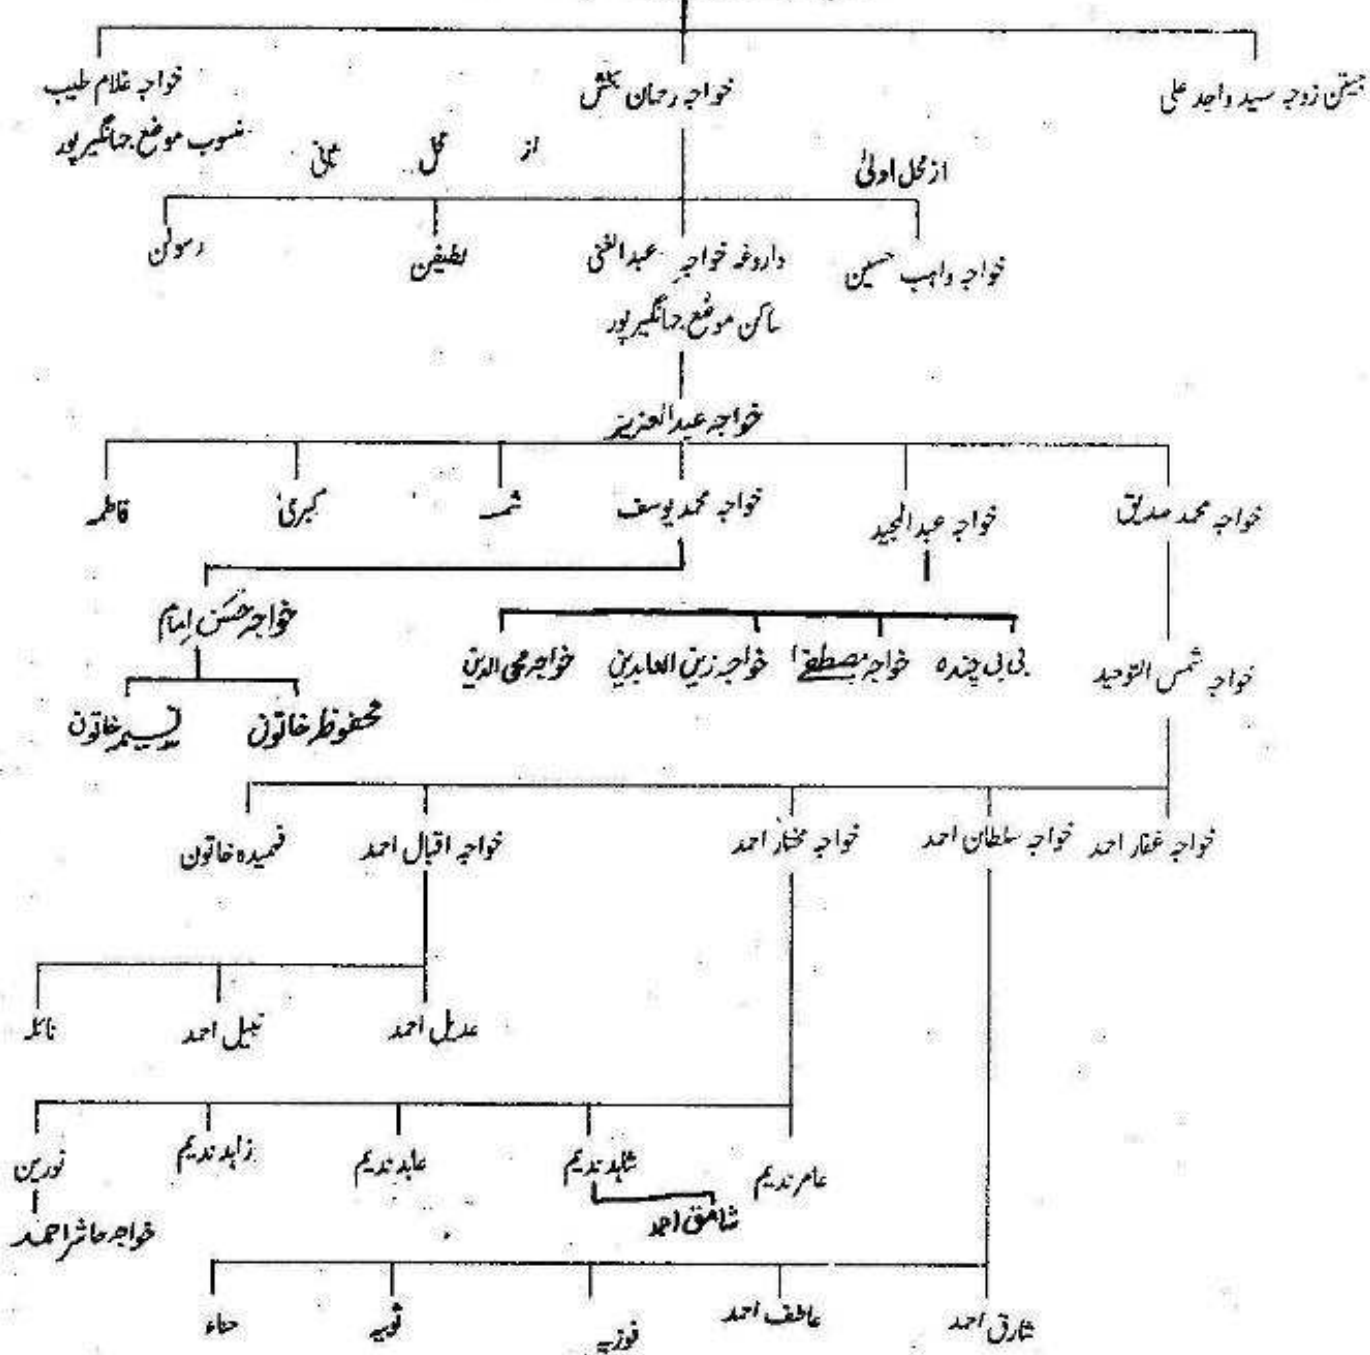 جیتن زوجہ سید واجد علی
خواجہ رحمان بخش
خواجہ غلام طیب
منسوب موضع جہانگیر پور
از محل اولیٰ
از محل ثانی
خواجہ واہب حسین
داروغہ خواجہ عبدالغنی
ساکن موضع جہانگیر پور
لطیفن
رسولن
خواجہ عبدالعزیز
خواجہ محمد صدیق
خواجہ عبدالمجید
خواجہ محمد یوسف
کبریٰ
فاطمہ
خواجہ حسن امام
بی بی چندہ
خواجہ مصطفےٰ
خواجہ زین العابدین
خواجہ محی الدین
خواجہ شمس التوحید
محفوظ خاتون
خاتون
خواجہ غفار احمد
خواجہ سلطان احمد
خواجہ مختار احمد
خواجہ اقبال احمد
فہمیدہ خاتون
عدیل احمد
نبیل احمد
نائلہ
عامر ندیم
شاہد ندیم
عابد ندیم
زاہد ندیم
نورین
احمد
خواجہ حاشر احمد
شارق احمد
عاطف احمد
فوزیہ
ثوبیہ
حناء